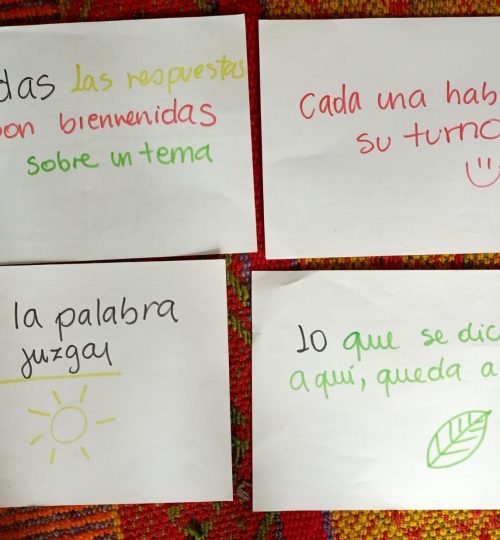 das las respuestas
on bienvenidas
sobre un tema
Cada una hab
su turno
la palabra
juzgar
lo que se dic
aquí, queda a